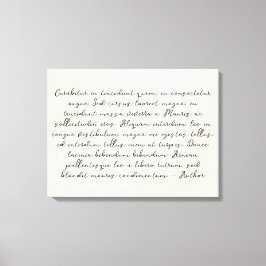 Curabitur in tincidunt quam, eu consectetur
augue. Sed cursus laoreet magna, eu
tincidunt massa viverra a. Mauris ac
sollicitudin eros. Aliquam interdum leo in
congue vestibulum magna, nec egestas tellus,
ed interdum tellus, enim at turpis. Donec
lacinia bibendum bibendum. Aenean
pellentesque leo a libero rutrum, sed
blandit mauris condimentum. - Author